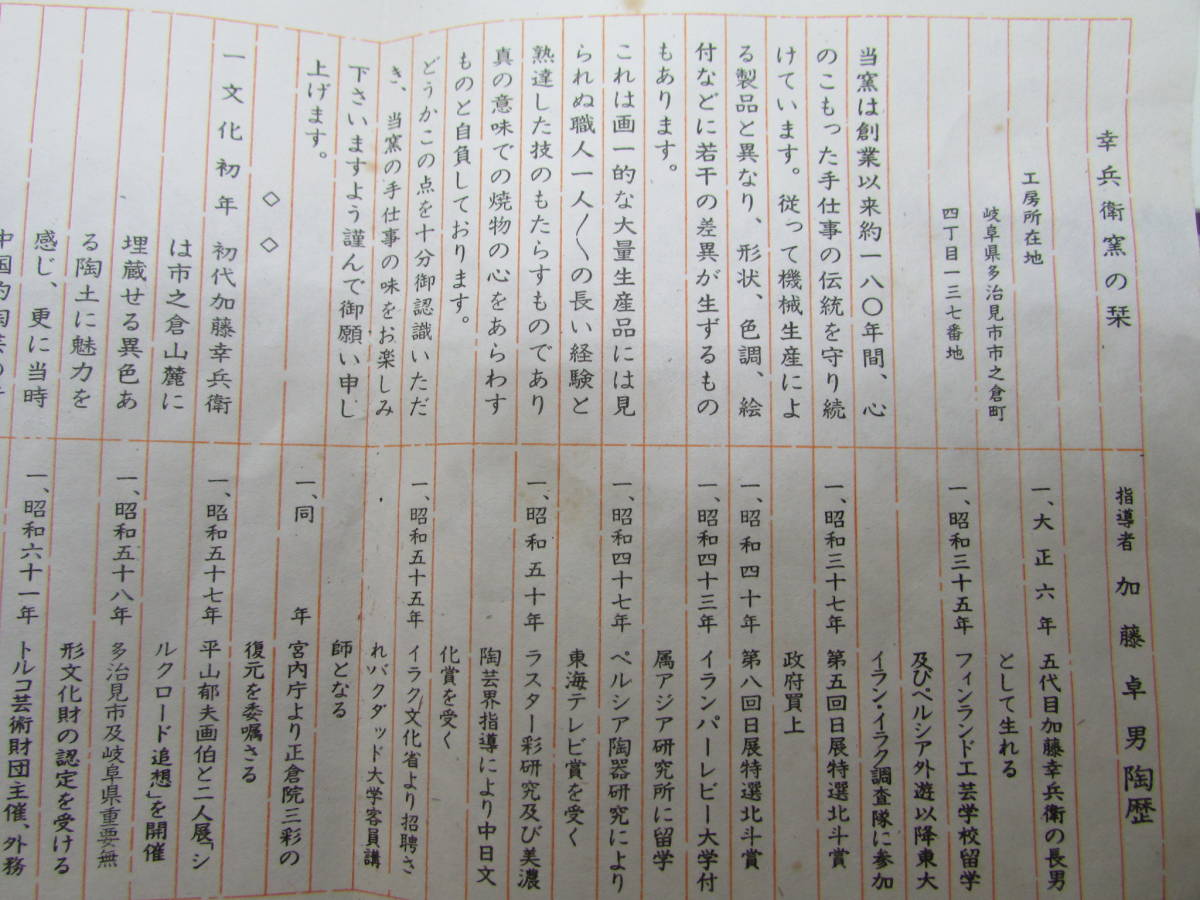 幸兵衛窯の栞
工房所在地
岐阜県多治見市市之倉町
四丁目一三七番地
当窯は創業以来約一八〇年間、心
のこもった手仕事の伝統を守り続
けています。従って機械生産によ
る製品と異なり、形状、色調、絵
付などに若干の差異が生ずるもの
もあります。
これは画一的な大量生産品には見
られぬ職人一人〳〵の長い経験と
熟達した技のもたらすものであり
真の意味での焼物の心をあらわす
ものと自負しております。
どうかこの点を十分御認識いただ
き、当窯の手仕事の味をお楽しみ
下さいますよう謹んで御願い申し
上げます。
◇ ◇
一文化初年 初代加藤幸兵衛
は市之倉山麓に
埋蔵せる異色あ
る陶土に魅力を
感じ、更に当時
指導者 加藤卓男陶歴
一、大正六年 五代目加藤幸兵衛の長男
として生れる
一、昭和三十五年 フィンランド工芸学校留学
及びペルシア外遊以降東大
イラン・イラク調査隊に参加
一、昭和三十七年 第五回日展特選北斗賞
政府買上
一、昭和四十年 第八回日展特選北斗賞
一、昭和四十三年 イランパーレビー大学付
属アジア研究所に留学
一、昭和四十七年 ペルシア陶器研究により
東海テレビ賞を受く
一、昭和五十年 ラスター彩研究及び美濃
陶芸界指導により中日文
化賞を受く
一、昭和五十五年 イラク文化省より招聘さ
れバクダッド大学客員講
師となる
一、同年 宮内庁より正倉院三彩の
復元を委嘱さる
一、昭和五十七年 平山郁夫画伯と二人展「シ
ルクロード追想」を開催
一、昭和五十八年 多治見市及岐阜県重要無
形文化財の認定を受ける
一、昭和六十一年 トルコ芸術財団主催、外務